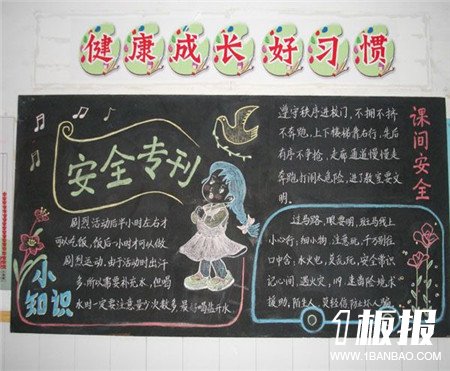 健康成长好习惯
安全专刊
剧烈活动后半小时左右才
可以吃饭,饭后一小时才可以做
剧烈运动。由于活动时出汗
多,所以需要补充水,但喝
水时一定要注意量少次数多,最好喝盐开水
小知识
遵守秩序进校门,不拥不挤
不奔跑,上下楼梯靠右行,先后
有序不争抢,走廊通道慢慢走
奔跑打闹太危险,进了教室要文
明。
课间安全
过马路,眼要明,斑马线上
小心行,细小物,注意玩,千万别往
口中含,水火电,莫乱玩,安全常识
记心间,遇火灾,119,走出险境求
援助,陌生人,莫轻信防止坏人骗
1板报
WWW.1BANBAO.COM